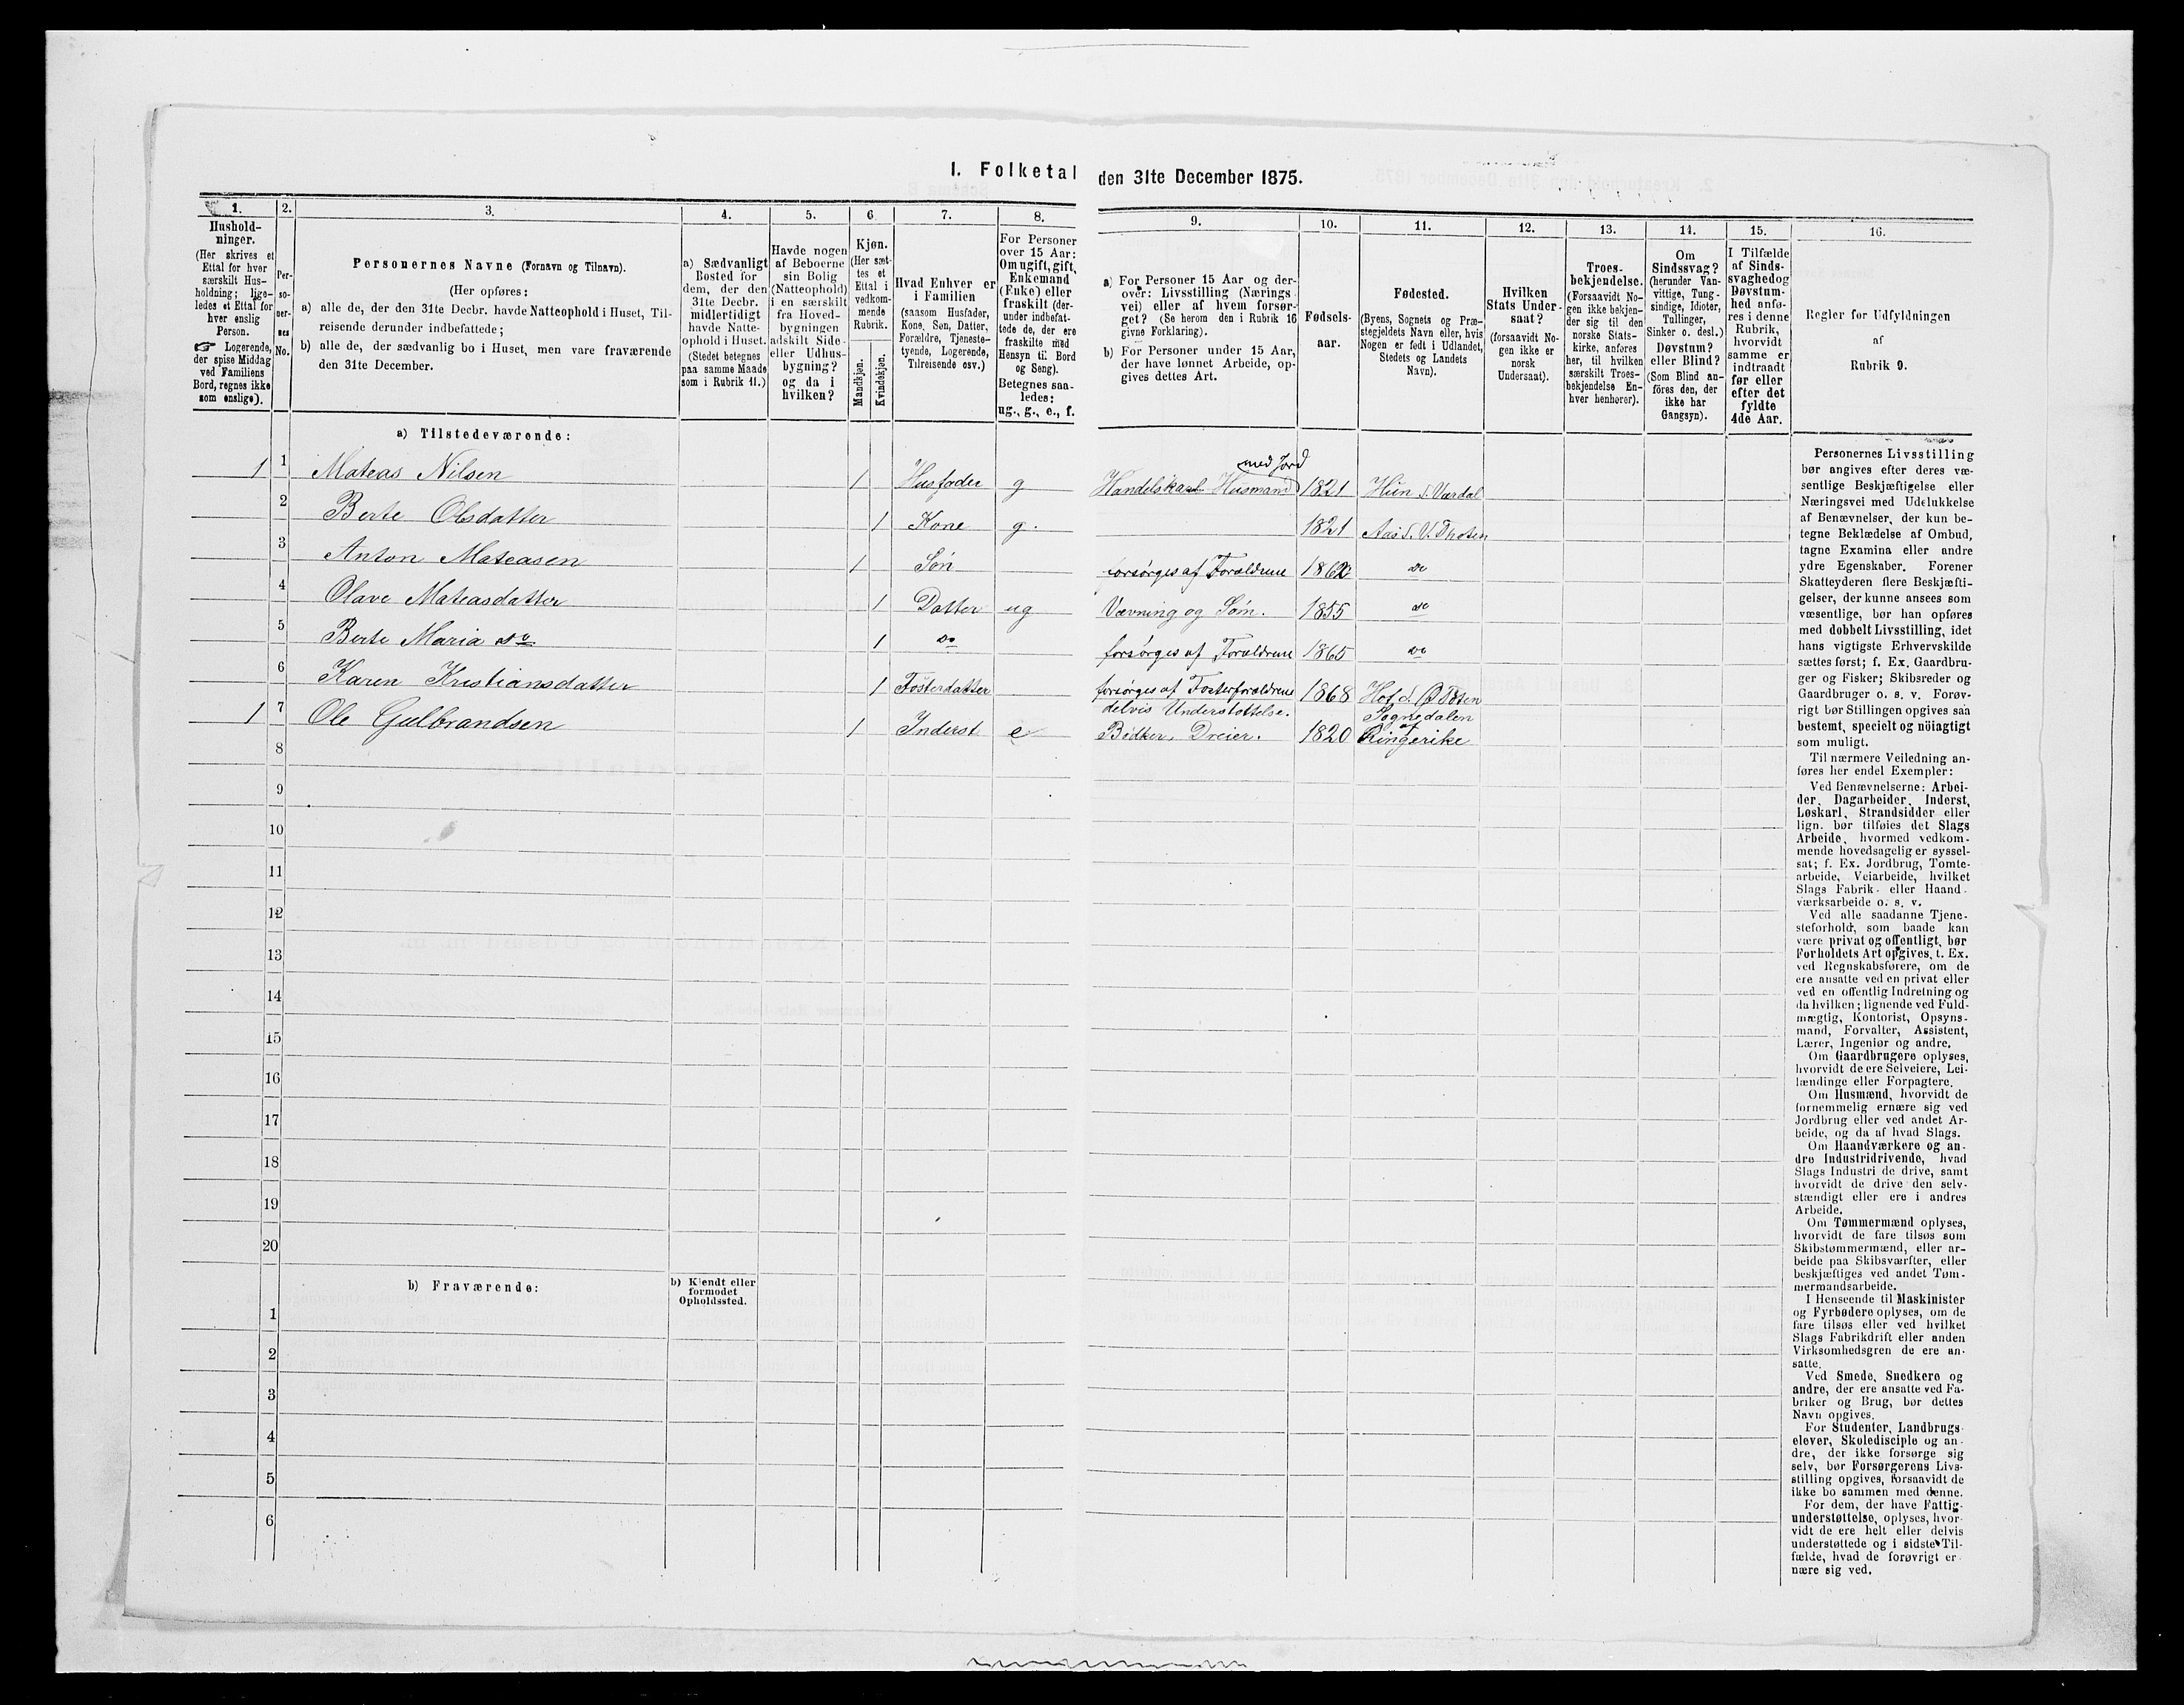 I. Folketal den 31te December 1875.
1. 2. 3. 4. 5. 6. 7. 8. 9. 10. 11. 12. 13. 14. 15. 16.
Hushold-
ninger.
(Her skrives et
Ettal for hver
særskilt Hus-
holdning; lige-
ledes et Ettal for
hver enslig
Person.
☞ Logerende,
der spise Middag
ved Familiens
Bord, regnes ikke
som enslige).
Per-
so-
ner-
nes
No.
Personernes Navne (Fornavn og Tilnavn).
(Her opføres:
a) alle de, der den 31te Decbr. havde Natteophold i Huset, Til-
reisende derunder indbefattede;
b) alle de, der sædvanlig bo i Huset, men vare fraværende
den 31te December.
a) Sædvanligt
Bosted for
dem, der den
31te Decbr.
midlertidigt
havde Natte-
ophold i Huset.
(Stedet betegnes
paa samme Maade
som i Rubrik 11.)
Havde nogen
af Beboerne
sin Bolig
(Natteophold)
i en særskilt
fra Hoved-
bygningen
adskilt Side-
eller Udhus-
bygning?
og da i
hvilken?
Kjøn.
(Her sæt-
tes et
Ettal i
vedkom-
mende
Rubrik.
Mandkjøn.
Kvindekjøn.
Hvad Enhver er
i Familien
(saasom Husfader,
Kone, Søn, Datter,
Forældre, Tjeneste-
tyende, Logerende,
Tilreisende osv.)
For Personer
over 15 Aar:
Om ugift, gift,
Enkemand
(Enke) eller
fraskilt (der-
under indbefat-
tede de, der ere
fraskilte med
Hensyn til Bord
og Seng).
Betegnes saa-
ledes:
ug., g., e., f.
a) For Personer 15 Aar og der-
over: Livsstilling (Nærings-
vei) eller af hvem forsør-
get? (Se herom den i Rubrik 16
givne Forklaring).
b) For Personer under 15 Aar,
der have lønnet Arbeide, op-
gives dettes Art.
Fødsels-
aar.
Fødested.
(Byens, Sognets og Præ-
stegjeldets Navn eller, hvis
Nogen er født i Udlandet,
Stedets og Landets
Navn).
Hvilken
Stats Under-
saat?
(forsaavidt No-
gen ikke er
norsk
Undersaat).
Troes-
bekjendelse.
(Forsaavidt No-
gen ikke bekjen-
der sig til den
norske Stats-
kirke, anføres
her, til hvilken
særskilt Troes-
bekjendelse En-
hver henhører).
Om
Sindssvag?
(herunder Van-
vittige, Tung-
sindige, Idioter,
Tullinger,
Sinker o. desl.)
Døvstum?
eller Blind?
(Som Blind an-
föres den, der
ikke har
Gangsyn).
I Tilfælde
af Sinds-
svaghed og
Døvstum-
hed anfø-
res i denne
Rubrik,
hvorvidt
samme er
indtraadt
før eller
efter det
fyldte
4de Aar.
Regler for Udfyldningen
af
Rubrik 9.
a) Tilstedeværende:
1 1 Mateas Nilsen 1 Husfader g Handelskarl Husmand med Jord 1821 Hun S. Vardal
2 Berte Olsdatter 1 Kone g. 1821 Aas S. V. Thoten
3 Anton Mateasen 1 Søn forsørges af Forældrene 1862 do
4 Olave Mateasdatter 1 Datter ug Vævning og Søm. 1855 do
5 Berte Maria do 1 do forsørges af Forældrene 1865 do
6 Karen Kristiansdatter 1 Fosterdatter forsørges af Fosterforældrene 1868 Hof S. Ø Toten
delvis Understøttelse.
1 7 Ole Gulbrandsen 1 Inderst e Bødker, Dreier. 1820 Sognedalen
Ringerike
8
9
10
11
12
13
14
15
16
17
18
19
20
b) Fraværende:
b) Kjendt eller
formodet
Opholdssted.
1
2
3
4
5
6
Personernes Livsstilling
bør angives efter deres væ-
sentlige Beskjæftigelse eller
Næringsvei med Udelukkelse
af Benævnelser, der kun be-
tegne Beklædelse af Ombud,
tagne Examina eller andre
ydre Egenskaber. Forener
Skatteyderen flere Beskjæfti-
gelser, der kunne ansees som
væsentlige, bør han opføres
med dobbelt Livsstilling, idet
hans vigtigste Erhvervskilde
sættes først; f. Ex. Gaardbru-
ger og Fisker; Skibsreder og
Gaardbruger o. s. v. Forøv-
rigt bør Stillingen opgives saa
bestemt, specielt og nöiagtigt
som muligt.
Til nærmere Veiledning an-
føres her endel Exempler:
Ved Benævnelserne: Arbei-
der, Dagarbeider, Inderst,
Løskarl, Strandsidder eller
lign. bør tilføies det Slags
Arbeide, hvormed vedkom-
mende hovedsagelig er syssel-
sat; f. Ex. Jordbrug, Tomte-
arbeide, Veiarbeide, hvilket
Slags Fabrik- eller Haand-
værksarbeide o. s. v.
Ved alle saadanne Tjene-
steforhold, som baade kan
være privat og offentligt, bør
Forholdets Art opgives, t. Ex.
ved Regnskabsførere, om de
ere ansatte ved en privat eller
ved en offentlig Indretning og
da hvilken; lignende ved Fuld-
mægtig, Kontorist, Opsyns-
mand, Forvalter, Assistent,
Lærer, Ingeniør og andre.
Om Gaardbrugere oplyses,
hvorvidt de ere Selveiere, Lei-
lændinge eller Forpagtere.
Om Husmænd, hvorvidt de
fornemmelig ernære sig ved
Jordbrug eller ved andet Ar-
beide, og da af hvad Slags.
Om Haandværkere og an-
dre Industridrivende, hvad
Slags Industri de drive, samt
hvorvidt de drive den selv-
stændigt eller ere i andres
Arbeide.
Om Tømmermænd oplyses,
hvorvidt de fare tilsøs som
Skibstømmermænd, eller ar-
beide paa Skibsværfter, eller
beskjæftiges ved andet Tøm-
mermandsarbeide.
I Henseende til Maskinister
og Fyrbødere oplyses, om de
fare tilsøs eller ved hvilket
Slags Fabrikdrift eller anden
Virksomhedsgren de ere an-
satte.
Ved Smede, Snedkere og
andre, der ere ansatte ved Fa-
briker og Brug, bør dettes
Navn opgives.
For Studenter, Landbrugs-
elever, Skoledisciple og an-
dre, der ikke forsørge sig
selv, bør Forsørgerens Livs-
stilling opgives, forsaavidt de
ikke bo sammen med denne.
For dem, der have Fattig-
understøttelse, oplyses, hvor-
vidt de ere helt eller delvis
understøttede og i sidste Til-
fælde, hvad de forøvrigt er-
nære sig ved.